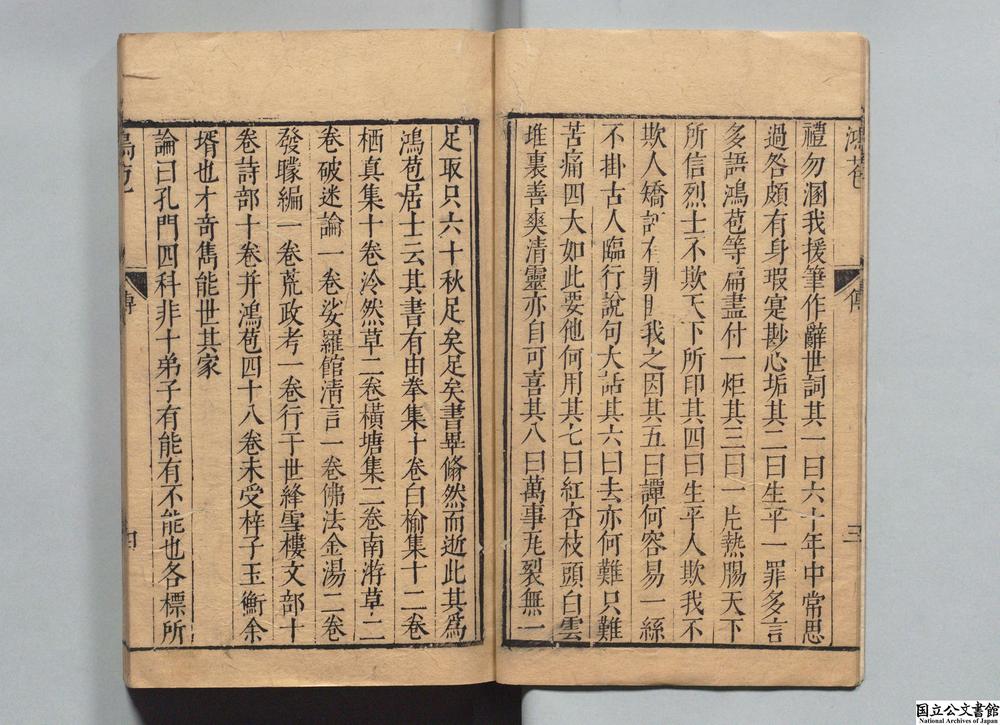 鴻苞
傳
三
禮勿溷我援筆作辭世詞其一曰六十年中常思
過咎頗有身瑕寔尠心垢其二曰生平一罪多言
多語鴻苞等扁盡付一炬其三曰一片熱腸天下
所信烈士不欺天下所印其四曰生平人欺我不
欺人矯
我之因其五曰譚何容易一絲
不掛古人臨行說句大話其六曰去亦何難只難
苦痛四大如此要他何用其七曰紅杏枝頭白雲
堆裏善爽清靈亦自可喜其八曰萬事瓦裂無一
足取只六十秋足矣足矣書畢翛然而逝此其為
鴻苞居士云其書有由拳集十卷白榆集十二卷
栖真集十卷泠然草二卷橫塘集二卷南游草二
卷破迷論一卷娑羅館清言一卷佛法金湯二卷
發矇編一卷荒政考一卷行于世絳雪樓文部十
卷詩部十卷并鴻苞四十八卷未受梓子玉衡余
壻也才奇雋能世其家
論曰孔門四科非十弟子有能有不能也各標所
鴻苞
傳
四
国立公文書館
National Archives of Japan